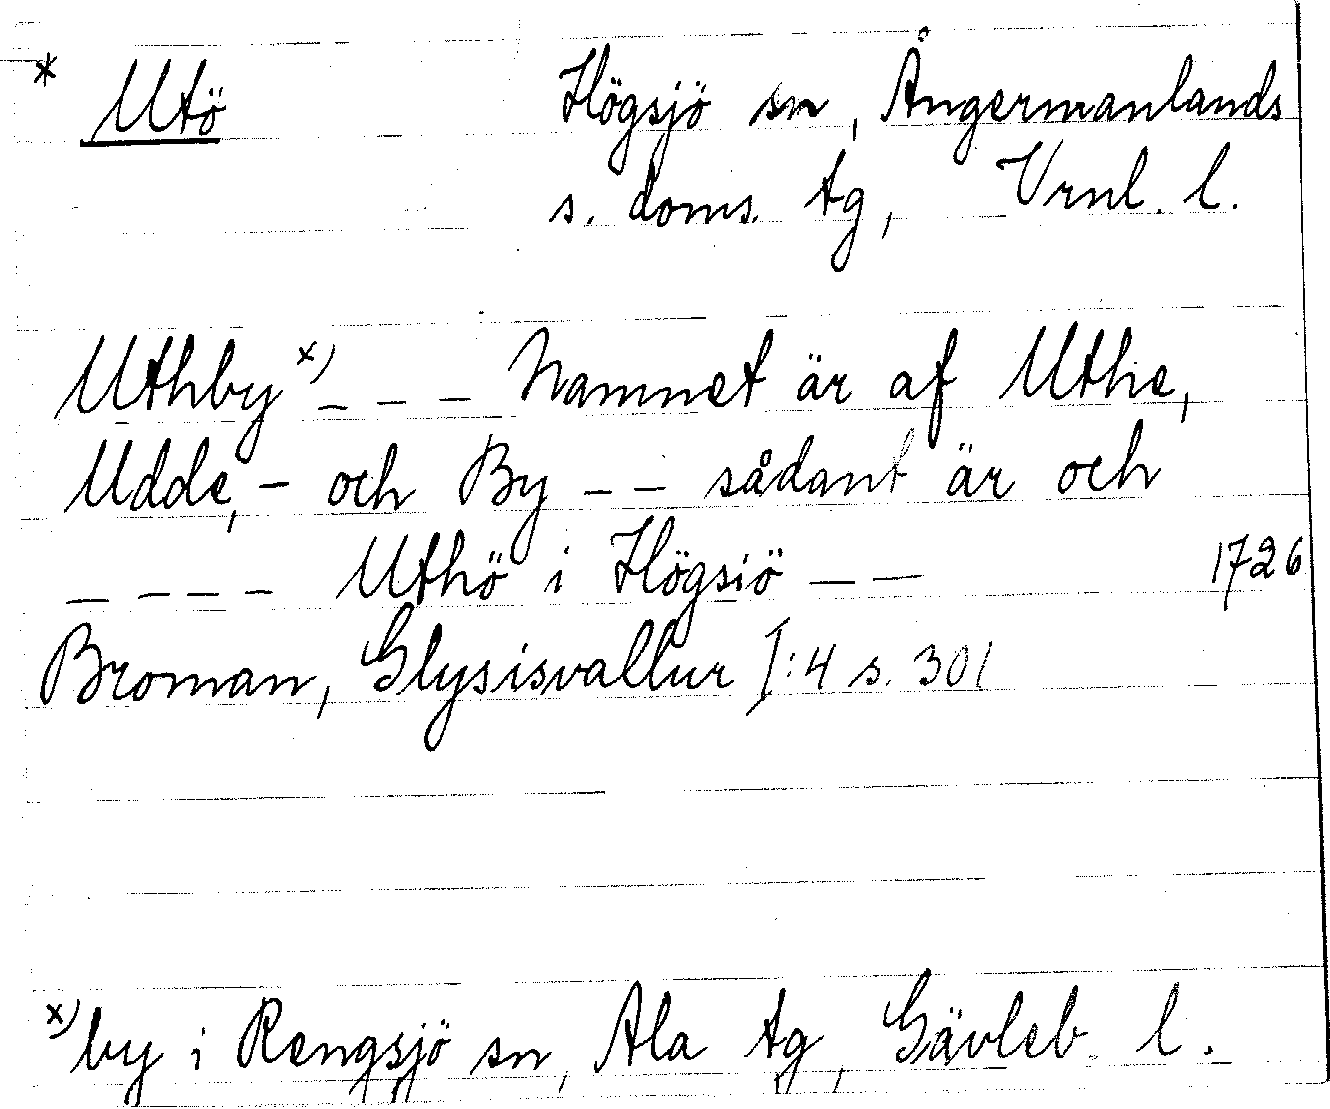 * Utö Högsjö sn, Ångermanlands
s. doms. tg, Vrnl. l.
Uthby x) _ _ _ Namnet är af Uthe,
Udde, - och By _ _ sådant är och
_ _ _ _ Uthö i Högsiö _ _ 1726
Broman, Glysisvallur I:4 s. 301
x) by i Rengsjö sn, Ala tg, Gävleb. l.